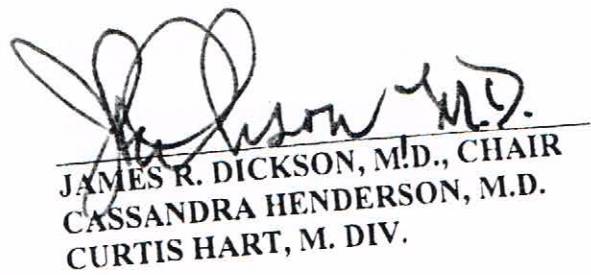 M.D.
JAMES R. DICKSON, M.D., CHAIR
CASSANDRA HENDERSON, M.D.
CURTIS HART, M. DIV.